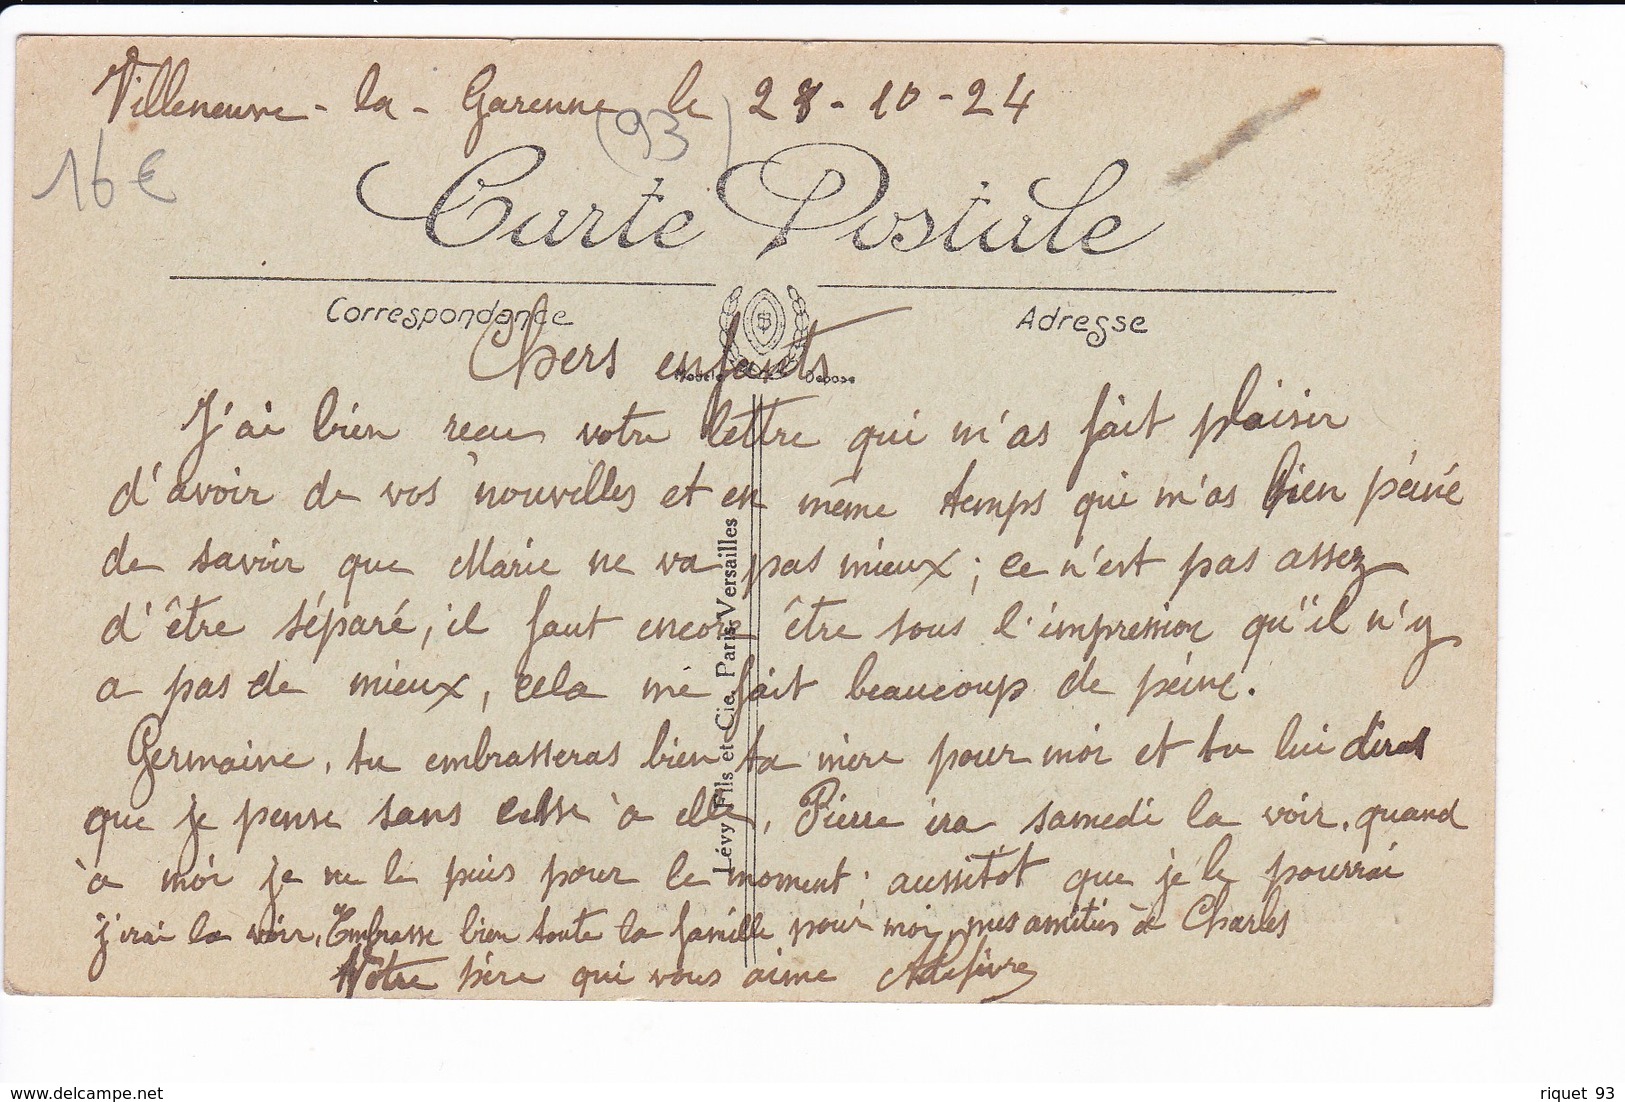 Villeneuve-la-Garenne le 28-10-24
(93)
16€
Carte Postale
Correspondance
Adresse
Chers enfants
J'ai bien recu votre lettre qui m'as fait plaisir
d'avoir de vos nouvelles et en même temps qui m'as bien péiné
de savoir que Marie ne va pas mieux; ce n'est pas assez
d'être séparé, il faut encore être sous l'impression qu'il n'y
a pas de mieux, cela me fait beaucoup de péine.
Germaine, tu embrasseras bien ta mère pour moi et tu lui diras
que je pense sans cesse à elle, Pierre ira samedi la voir. quand
à moi je ne le puis pour le moment. aussitôt que je le pourrai
j'irai la voir. Embrasse bien toute la famille pour moi, mes amitiés à Charles
Votre père qui vous aime ALefèvre
Lévy Fils et Cie, Paris-Versailles
riquet 93
https://www.delcampe.net